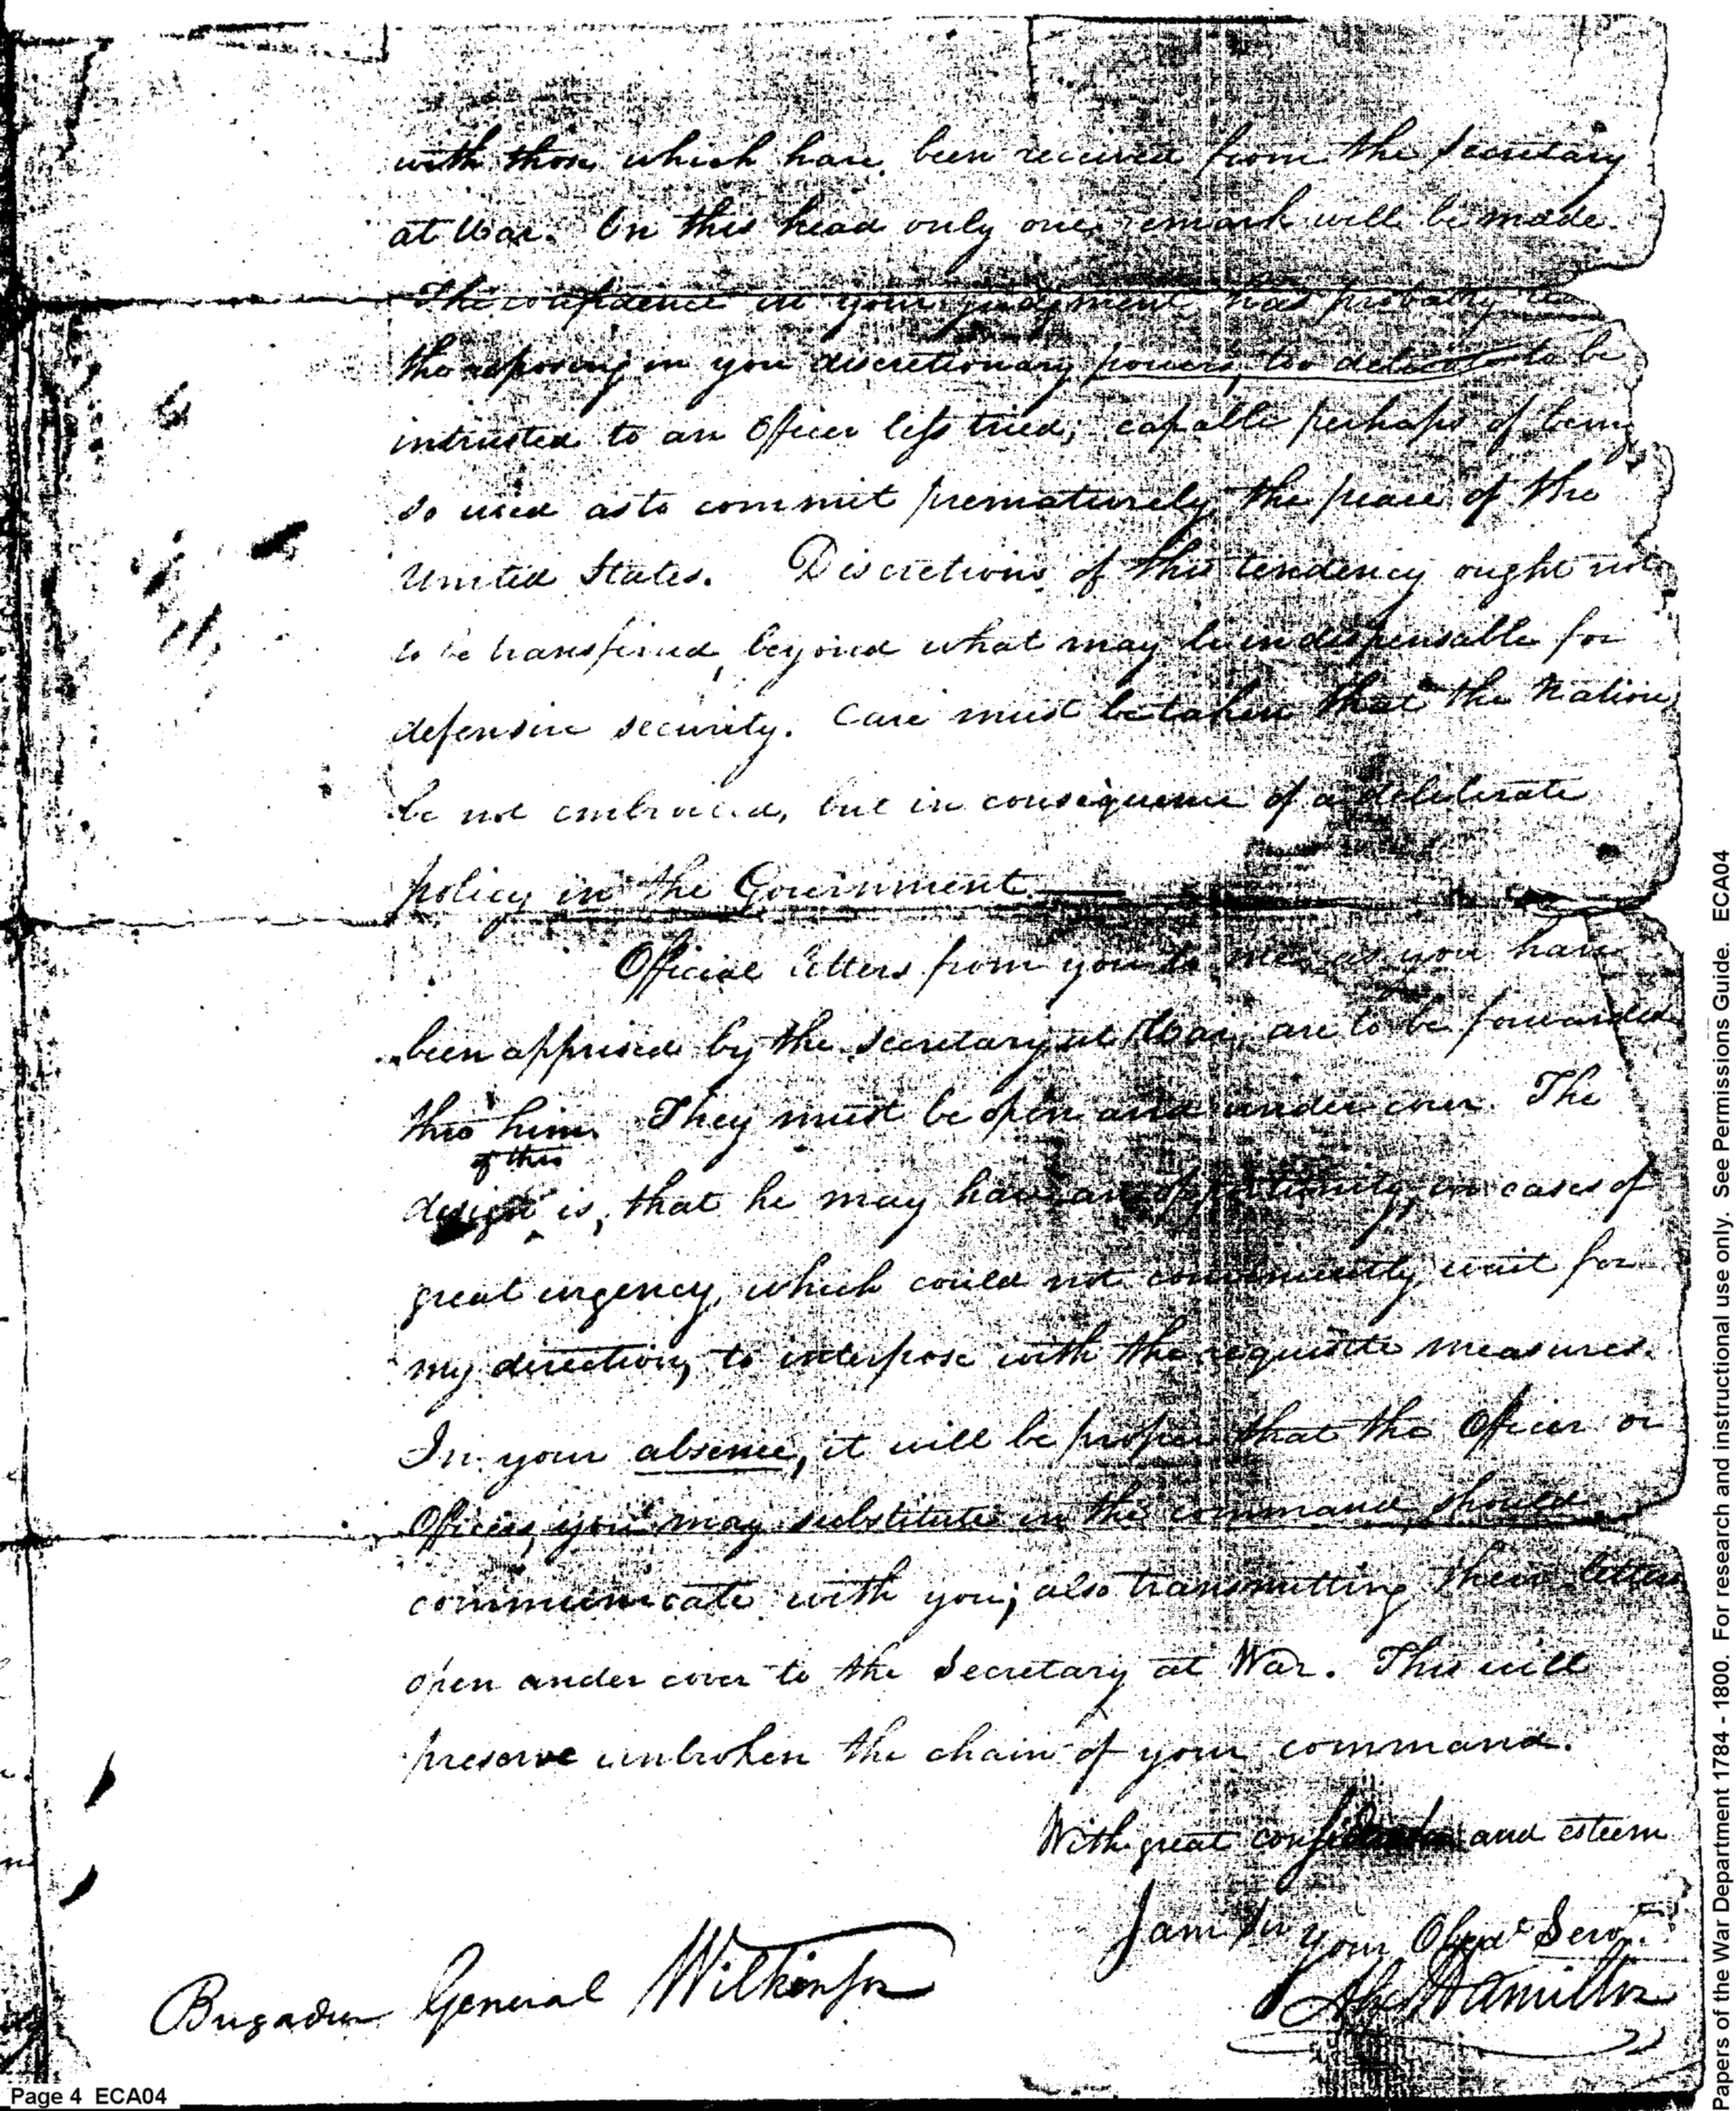 with those which have been received from the Secretary
at War. On this head only one remark will be made.
The confidence in your judgment has probably led
the reposing in you discretionary powers, too delicate to be
intrusted to an Officer less tried; capable perhaps of being
so used as to commit prematurely the peace of the
United States. Discretions of this tendency ought not
to be transferred, beyond what may be indispensable for
defensive security. Care must be taken that the Nation
be not embroiled, but in consequence of a deliberate
policy in the Government
Official letters from you to me, as you have
been apprised by the Secretary at War, are to be forwarded
thro' him. They must be open and under cover. The
of this
design is, that he may have an opportunity, in cases of
great urgency, which could not conveniently wait for
my direction, to interpose with the requisite measures.
In your absence, it will be proper that the Officer or
Officers, you may substitute in the command, should
communicate with you; also transmitting their letters
open under cover to the Secretary at War. This will
preserve unbroken the chain of your command.
With great and esteem
I am Sir your Obedt Servt.
Alex Hamilton
Brigadier General Wilkinson
Page 4 ECA04
Papers of the War Department 1784 - 1800. For research and instructional use only. See Permissions Guide. ECA04